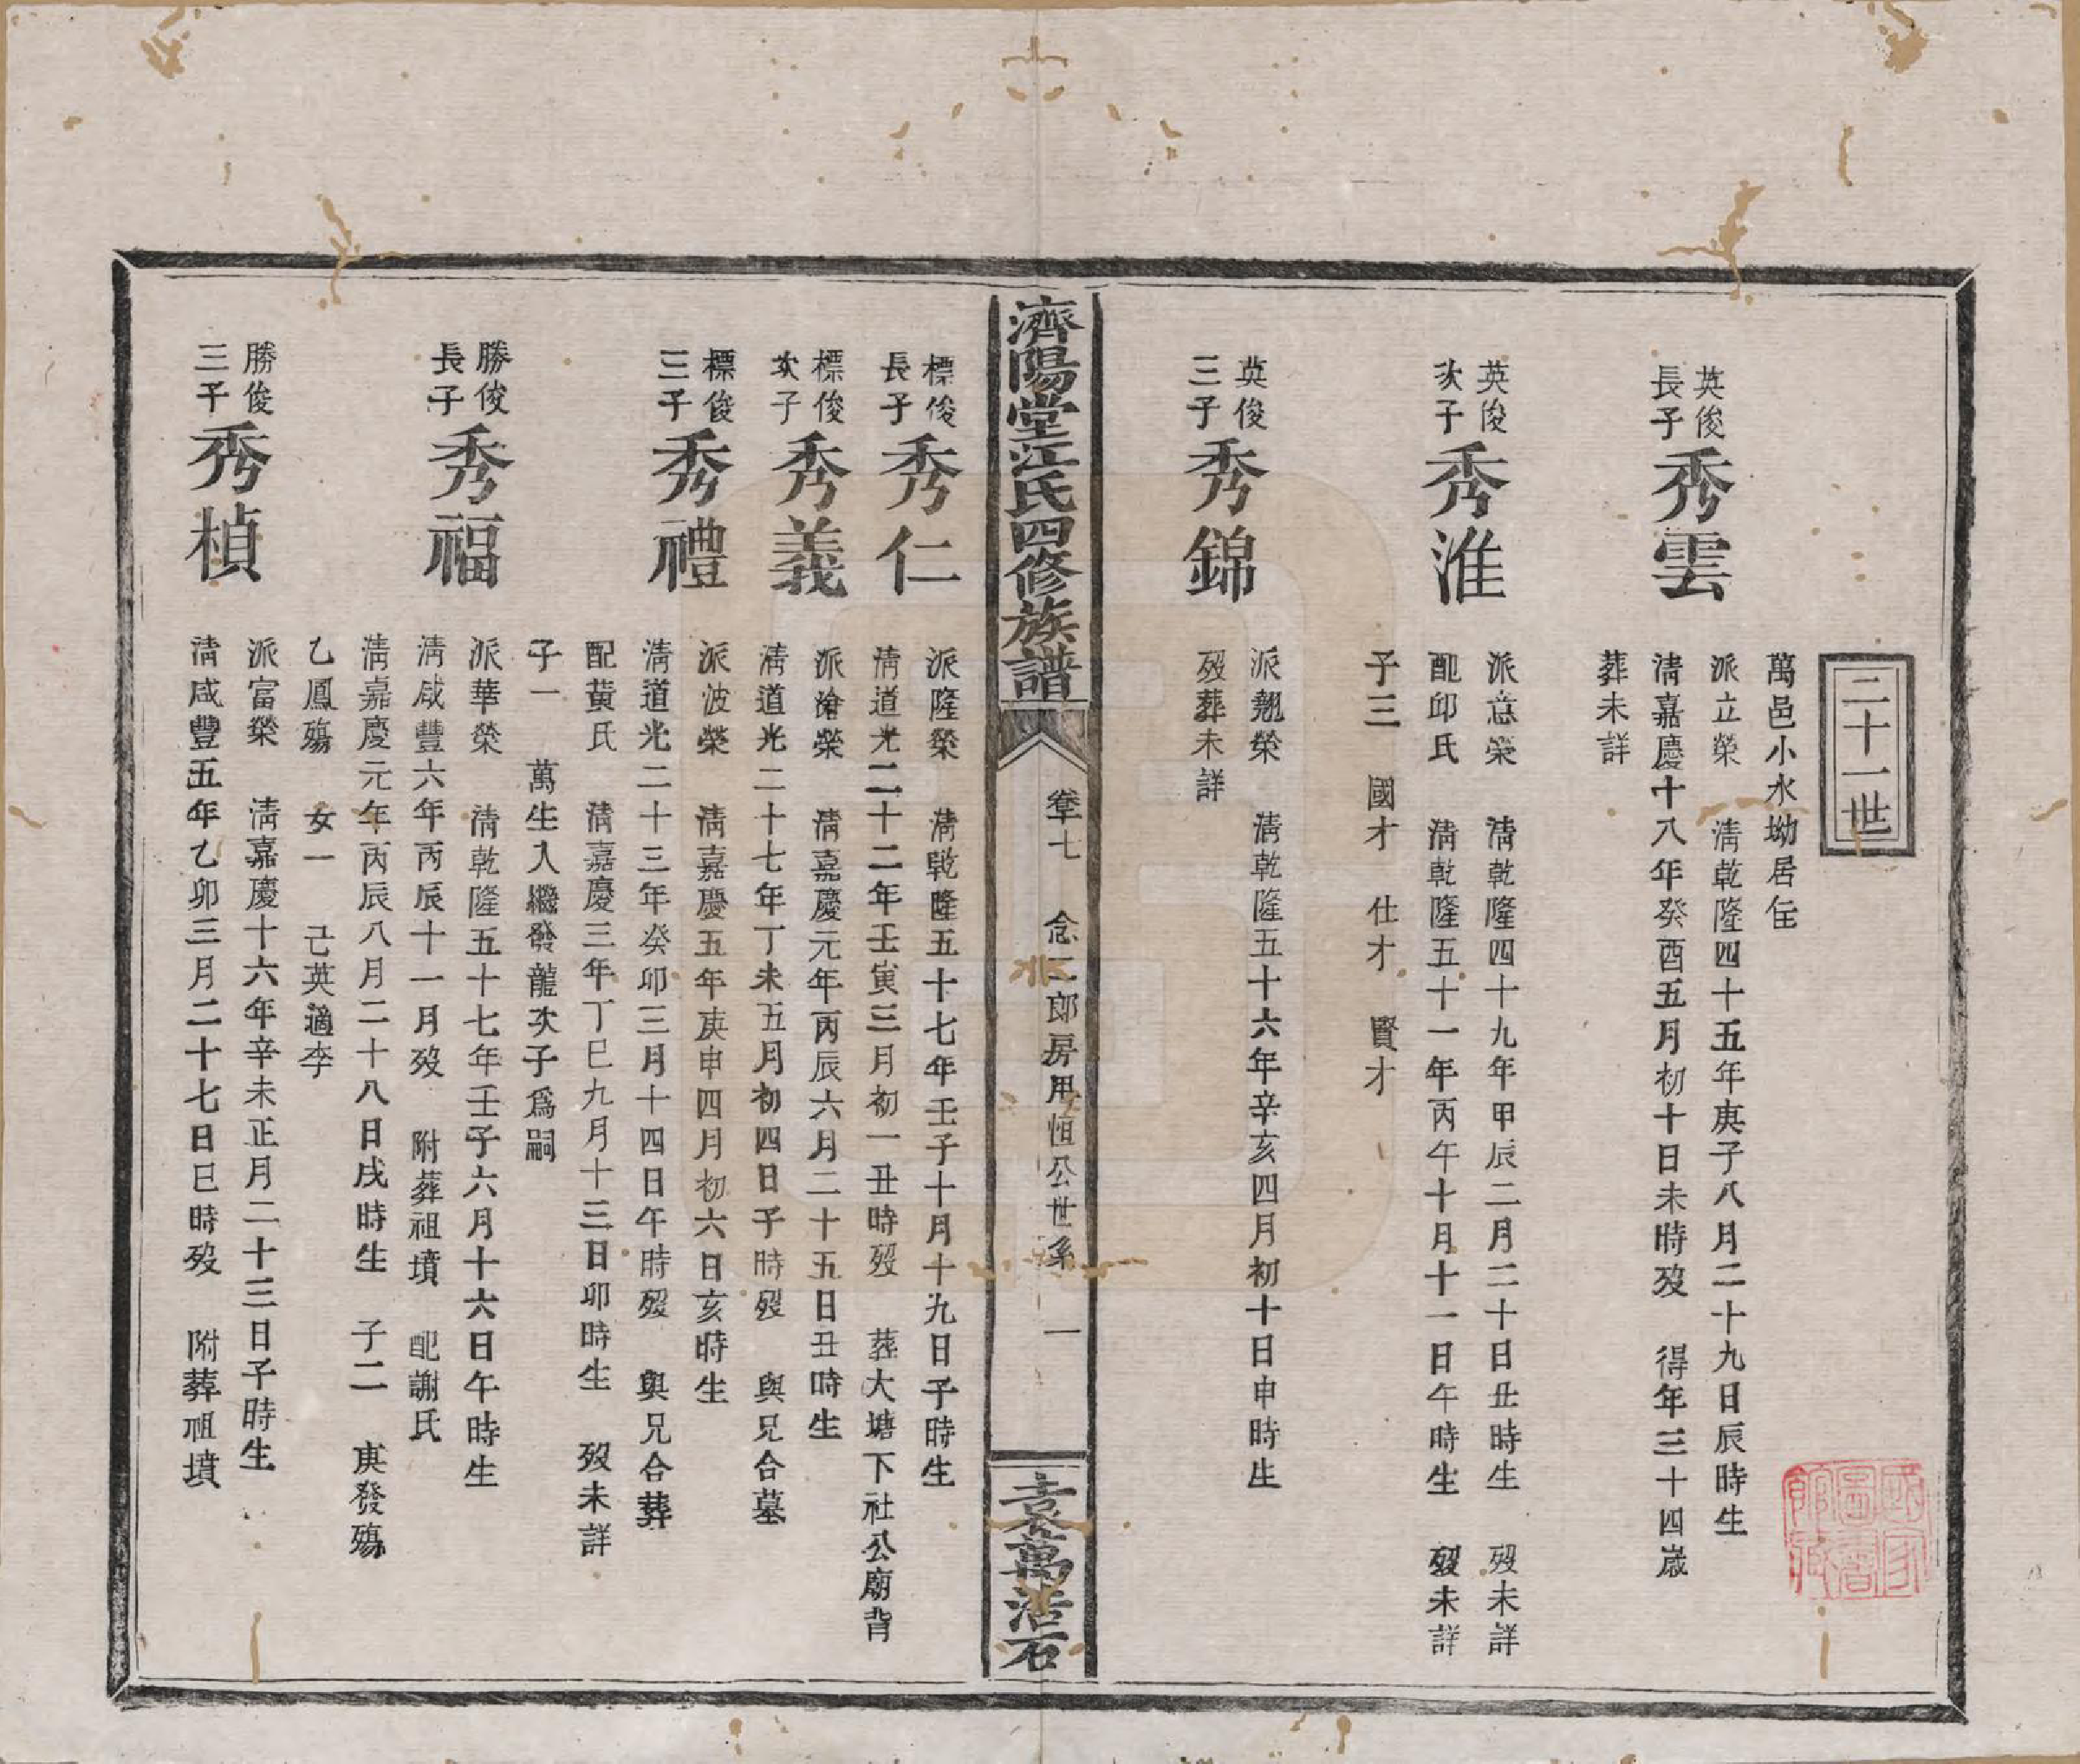 二十一世
萬邑小水坳居住
英俊
長子
秀雲
派立榮　清乾隆四十五年庚子八月二十九日辰時生
清嘉慶十八年癸酉五月初十日未時歿　得年三十四歲
葬未詳
英俊
次子
秀淮
派意榮　清乾隆四十九年甲辰二月二十日丑時生　歿未詳
配邱氏　清乾隆五十一年丙午十月十一日午時生　歿未詳
子三　國才　仕才　賢才
英俊
三子
秀錦
派翹榮　清乾隆五十六年辛亥四月初十日申時生
歿葬未詳
濟陽堂江氏四修族譜
卷七　念二郎房用恒公世系　一
袁萬浩石
標俊
長子
秀仁
派隆榮　清乾隆五十七年壬子十月十九日子時生
清道光二十二年壬寅三月初一丑時歿　葬大塘下社公廟背
標俊
次子
秀義
派滄榮　清嘉慶元年丙辰六月二十五日丑時生
清道光二十七年丁未五月初四日子時歿　與兄合墓
標俊
三子
秀禮
派波榮　清嘉慶五年庚申四月初六日亥時生
清道光二十三年癸卯三月十四日午時歿　與兄合葬
配黃氏　清嘉慶三年丁巳九月十三日卯時生　歿未詳
子一　萬生入繼發龍次子爲嗣
勝俊
長子
秀福
派華榮　清乾隆五十七年壬子六月十六日午時生
清咸豐六年丙辰十一月歿　附葬祖墳　配謝氏
清嘉慶元年丙辰八月二十八日戌時生　子二　庚發殤
乙鳳殤　女一　己英適李
勝俊
三子
秀楨
派富榮　清嘉慶十六年辛未正月二十三日子時生
清咸豐五年乙卯三月二十七日巳時歿　附葬祖墳
國家
圖書
館藏